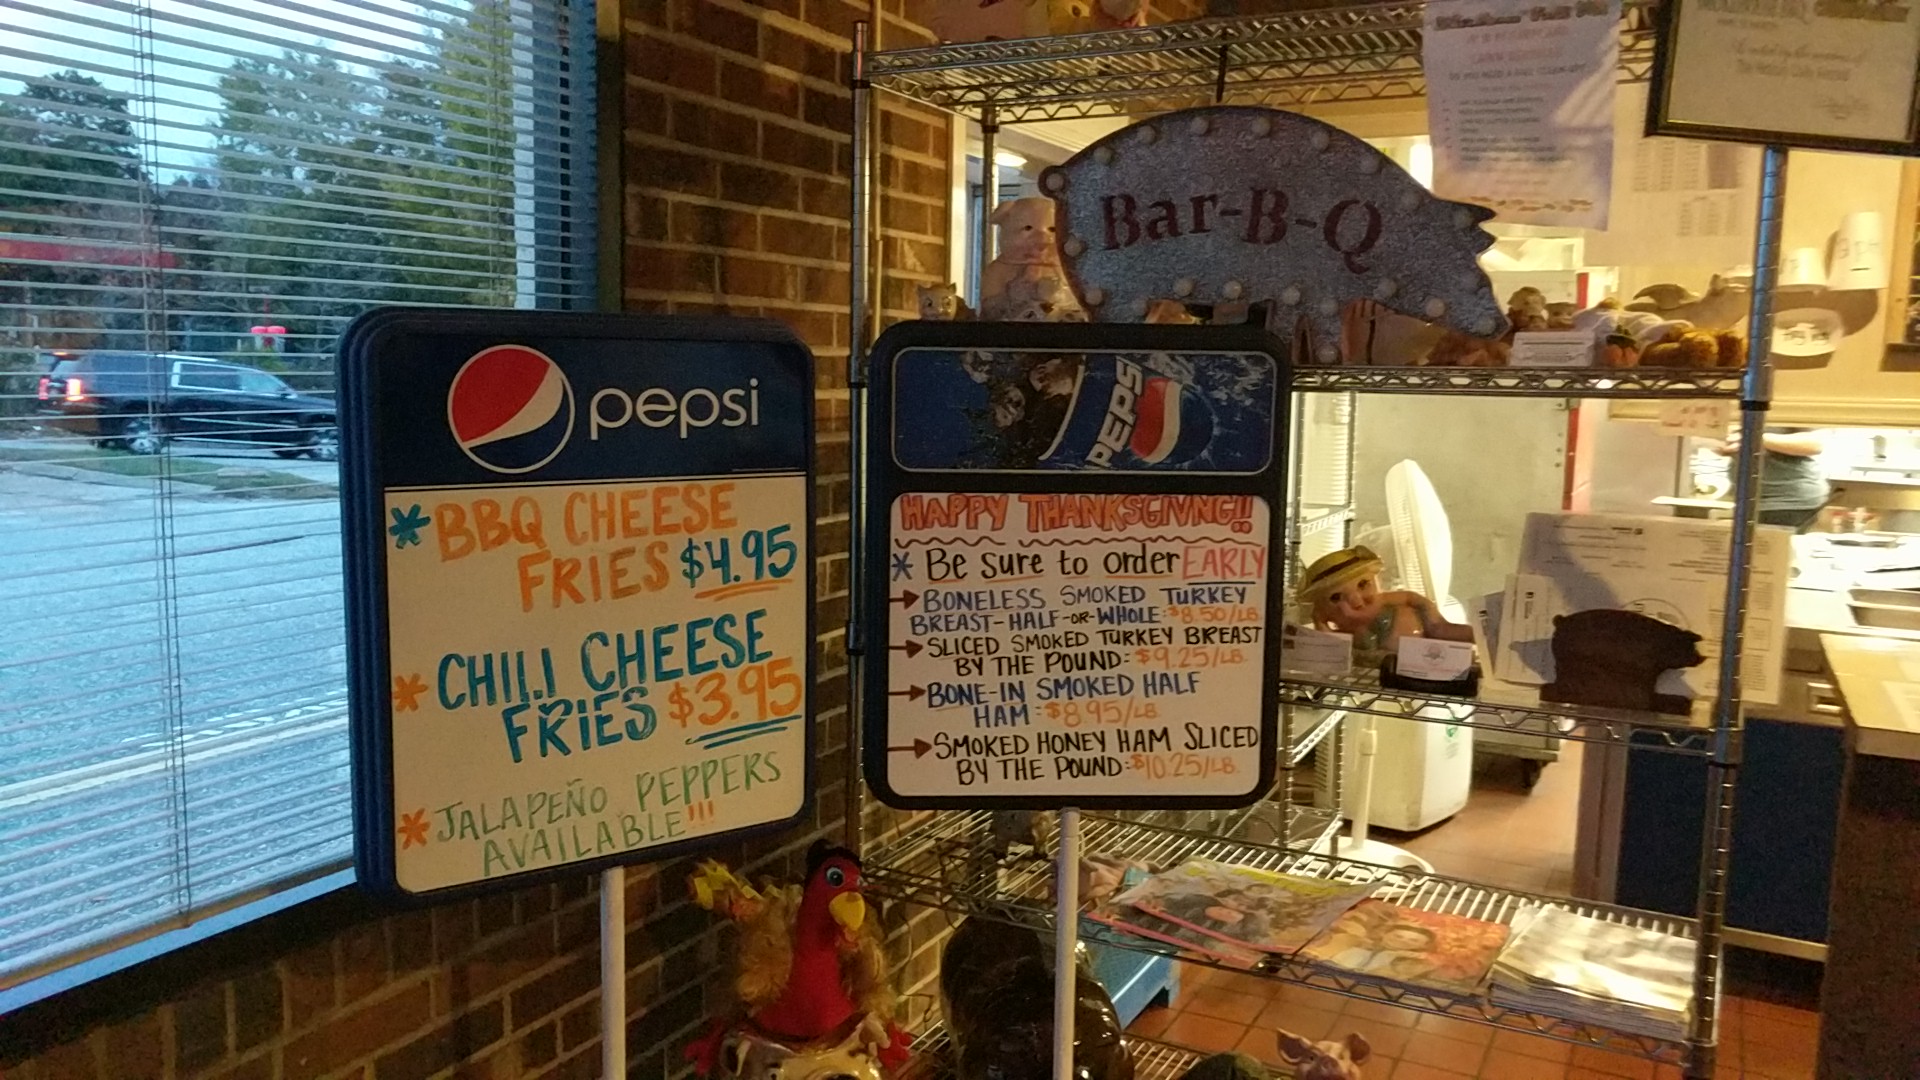 pepsi
* BBQ CHEESE
FRIES $4.95
* CHILI CHEESE
FRIES $3.95
* JALAPEÑO PEPPERS
AVAILABLE!!!
PEPSI
HAPPY THANKSGIVNG!!
* Be Sure to order EARLY
→ BONELESS SMOKED TURKEY
BREAST-HALF-OR-WHOLE: $8.50/LB.
→ SLICED SMOKED TURKEY BREAST
BY THE POUND: $9.25/LB.
→ BONE-IN SMOKED HALF
HAM: $8.95/LB.
→ SMOKED HONEY HAM SLICED
BY THE POUND: $10.25/LB.
Bar-B-Q